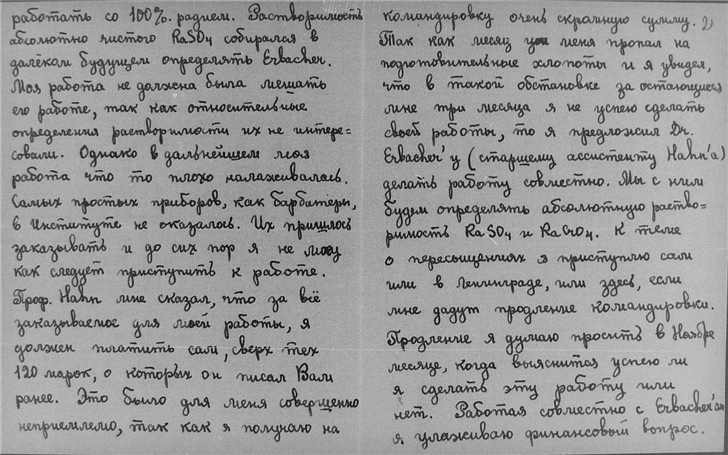 работать со 100% радием. Растворимость
абсолютно чистого RaSO4 собирался в
далёком будущем определять Erbacher.
Моя работа не должна была мешать
его работе, так как относительные
определения растворимости их не интере-
совали. Однако в дальнейшем моя
работа что то плохо налаживалась.
Самых простых приборов, как барбатеры,
в Институте не оказалось. Их пришлось
заказывать и до сих пор я не могу
как следует приступить к работе.
Проф. Hahn мне сказал, что за всё
заказываемое для моей работы, я
должен платить сам, сверх тех
120 марок, о которых он писал Вам
ранее. Это было для меня совершенно
неприемлемо, так как я получаю на
командировку очень скромную сумму. 2)
Так как месяц уже у меня пропал на
подготовительные хлопоты и я увидел,
что в такой обстановке за остающиеся
мне три месяца я не успею сделать
своей работы, то я предложил Dr.
Erbacher'у (старшему ассистенту Hahn'а)
делать работу совместно. Мы с ним
будем определять абсолютную раство-
римость RaSO4 и RaCrO4. К теме
о пересыщениях я приступлю сам
или в Ленинграде, или здесь, если
мне дадут продление командировки.
Продление я думаю просить в Ноябре
месяце, когда выяснится успею ли
я сделать эту работу или
нет. Работая совместно с Erbacher'ом
я улаживаю финансовый вопрос.